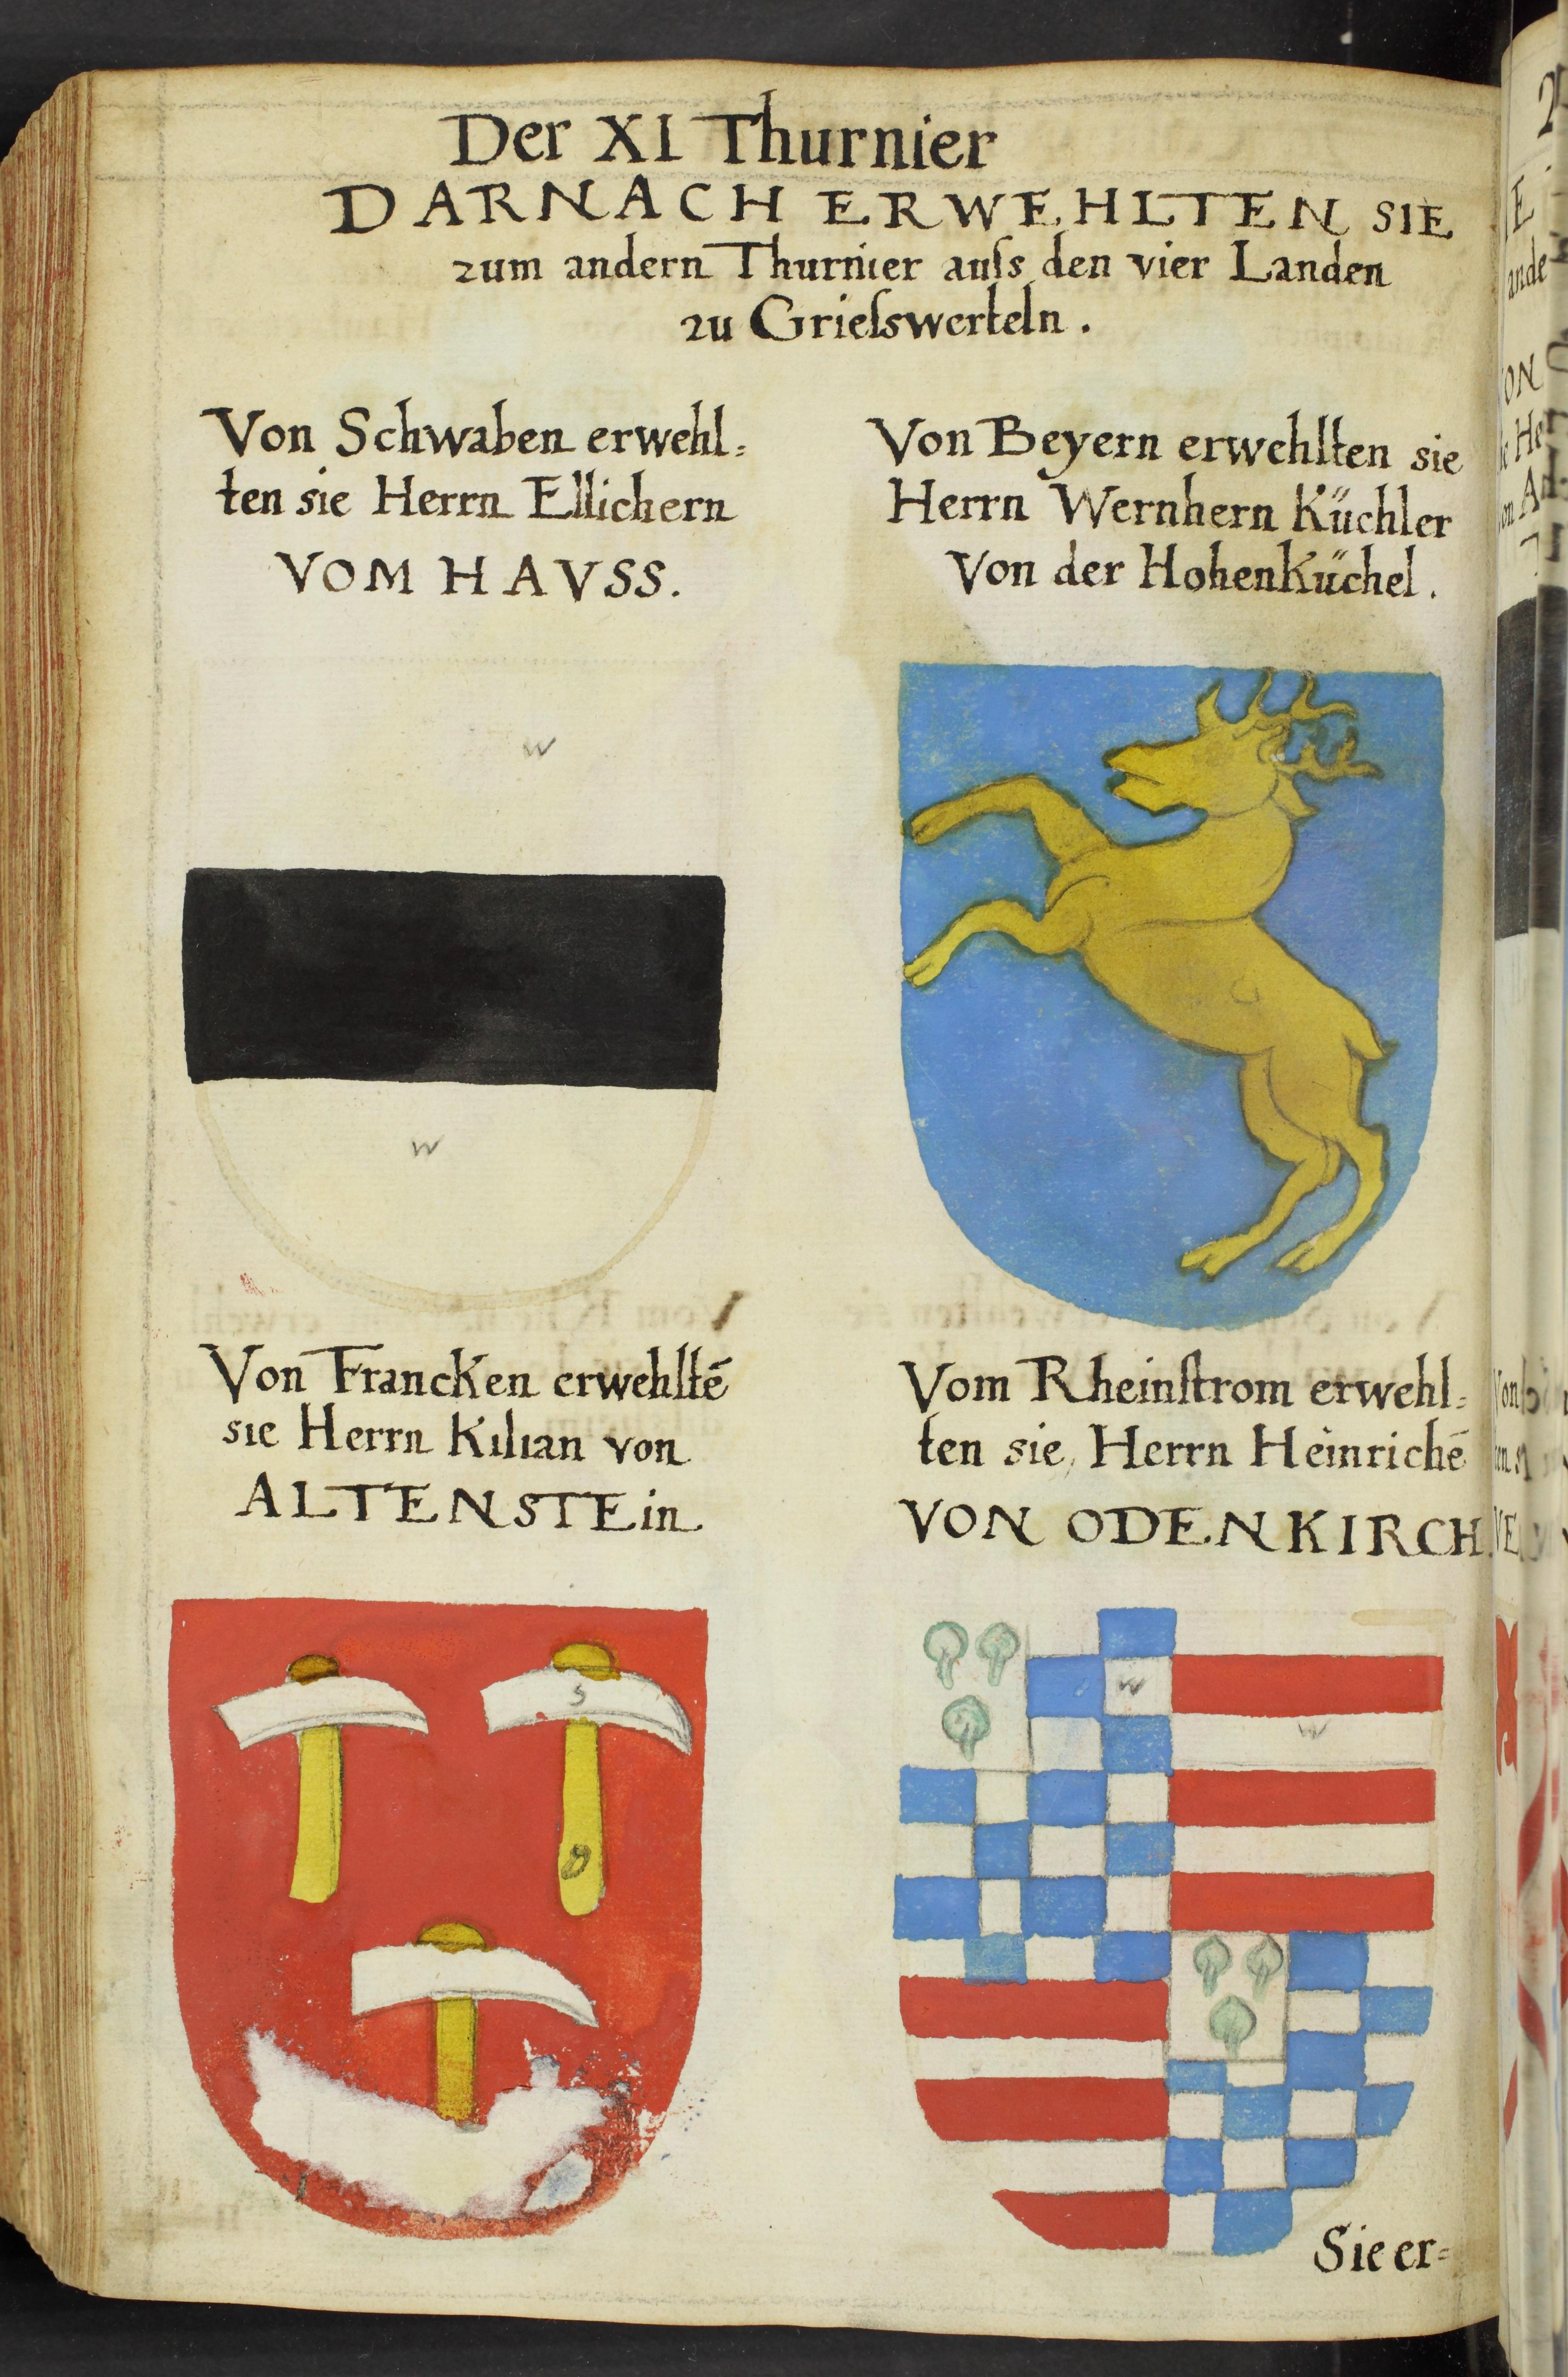 Der XI Thurnier
DARNACH ERWEHLTEN SIE
zum andern Thurnier auſs den vier Landen
zu Grieſswerteln.
Von Schwaben erwehl=
ten sie Herrn Ellichern
VOM HAVSS.
Von Beyern erwehlten sie
Herrn Wernhern Küchler
Von der HohenKüchel.
W
W
Von FrancKen erwehltē
sie Herrn Kilian von
ALTENSTEin
Vom Rheinſtrom erwehl=
ten sie, Herrn Heinrichē
VON ODENKIRCH.
S
W
W
Sie er=